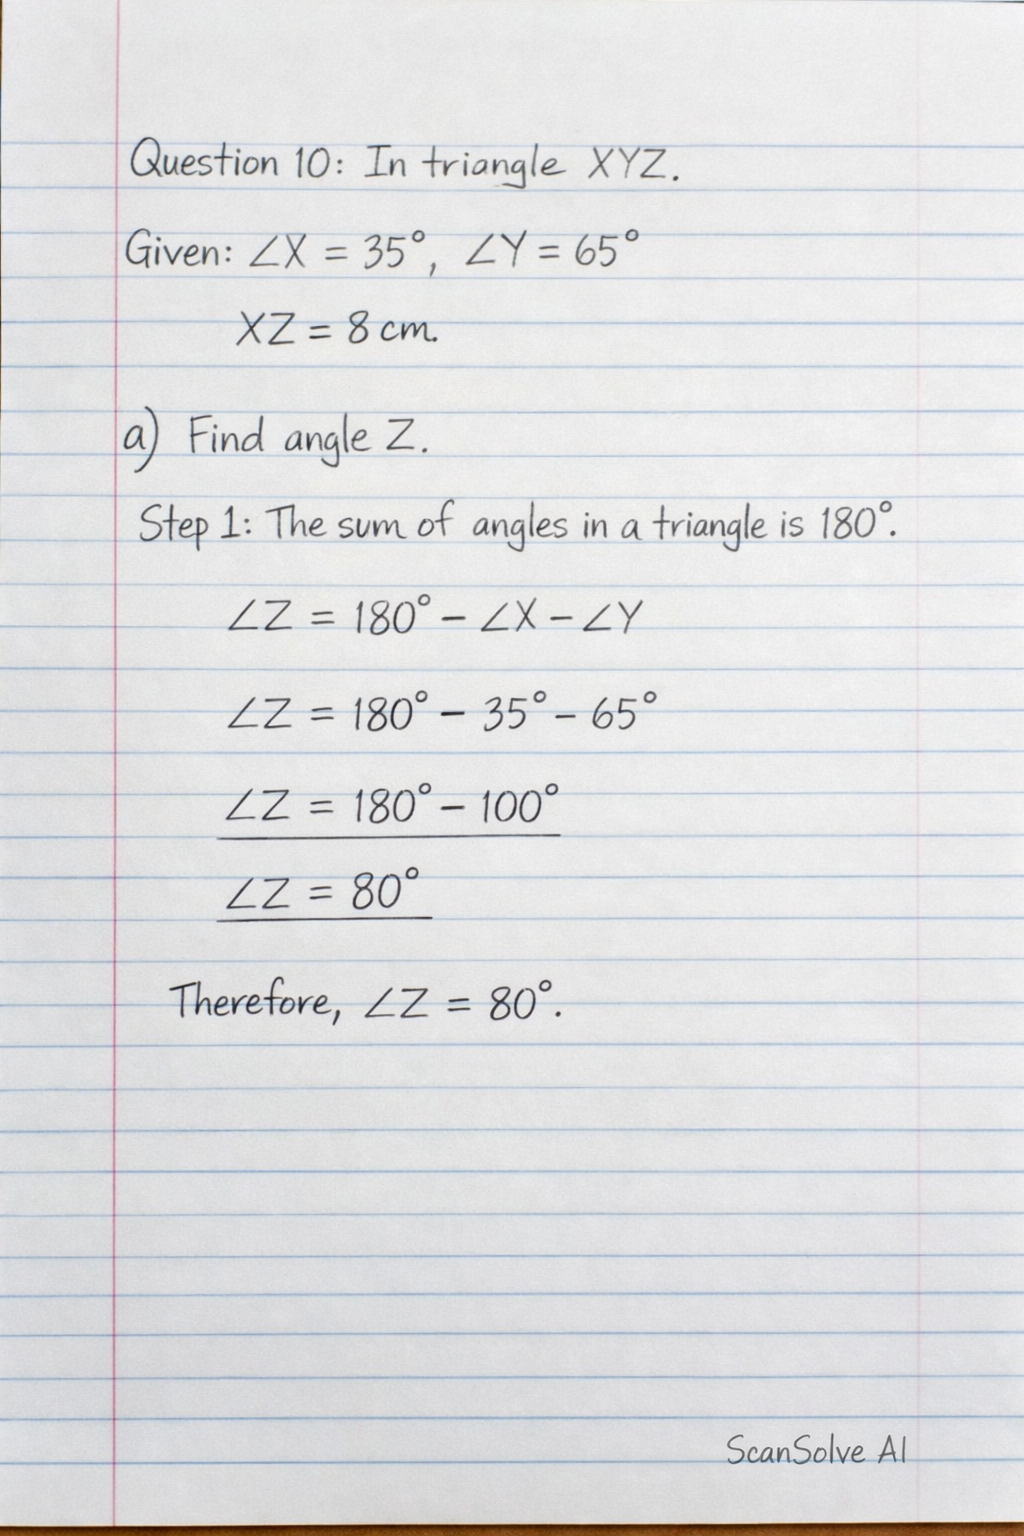 Question 10: In triangle XYZ.
Given: ∠X = 35°, ∠Y = 65°
XZ = 8 cm.
a) Find angle Z.
Step 1: The sum of angles in a triangle is 180°.
∠Z = 180° − ∠X − ∠Y
∠Z = 180° − 35° − 65°
∠Z = 180° − 100°
∠Z = 80°
Therefore, ∠Z = 80°.
ScanSolve AI